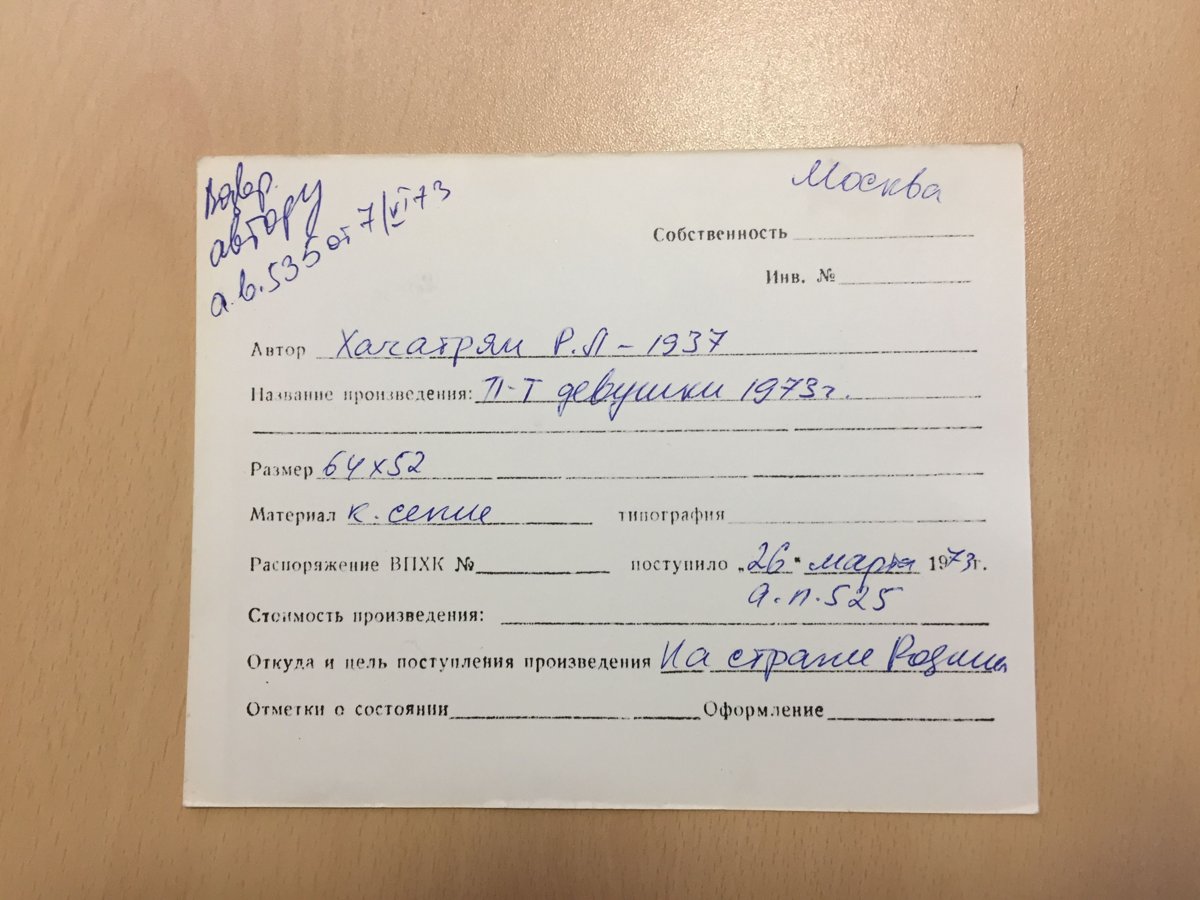 Возвр.
автору
а.в.535 от 7/VI 73
Москва
Собственность
Инв. №
Автор Хачатрян Р.Л - 1937
Название произведения: П-т девушки 1973г.
Размер 64х52
Материал к. сепие типография
Распоряжение ВПХК № поступило „26" марта 1973г.
а.п.525
Стоимость произведения:
Откуда и цель поступления произведения На страже Родины
Отметки о состоянии Оформление